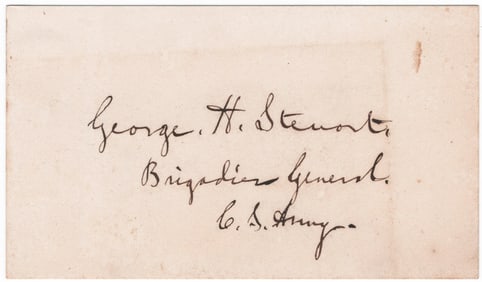 George. H. Steuart.
Brigadier General.
C. S. Army.